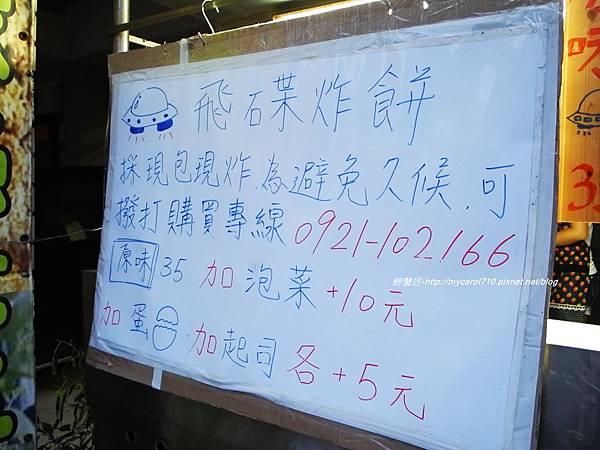 飛碟炸餅
採現包現炸.為避免久候.可
撥打購買專線0921-102166
原味35 加泡菜+10元
加蛋.加起司各+5元
螃蟹居-http://mycarol710.pixnet.net/blog
味
3